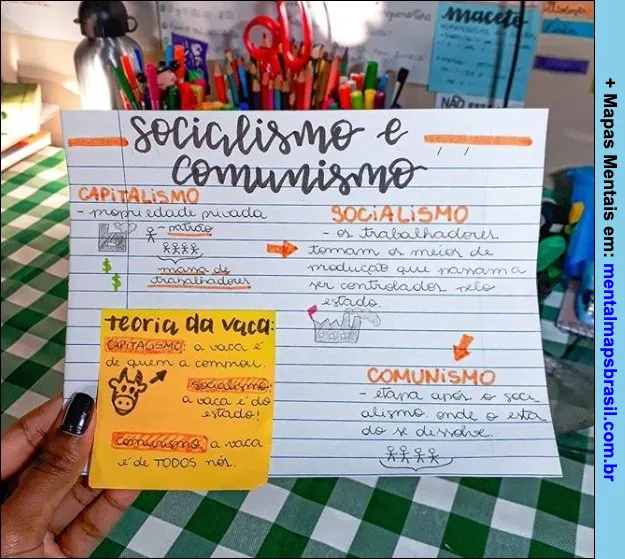 Socialismo e
comunismo
CAPITALISMO
- propriedade privada
- patrão
massa de
trabalhadores
$
$
SOCIALISMO
- os trabalhadores
tomam os meios de
produção que passam a
ser controlados pelo
estado.
COMUNISMO
- etapa após o soci
alismo onde o esta
do se dissolve.
Teoria da vaca:
CAPITALISMO: a vaca é
de quem a comprou.
socialismo:
a vaca é do
estado!
comunismo: a vaca
é de TODOS nós.
Macete
NÃO
+ Mapas Mentais em: mentalmapsbrasil.com.br